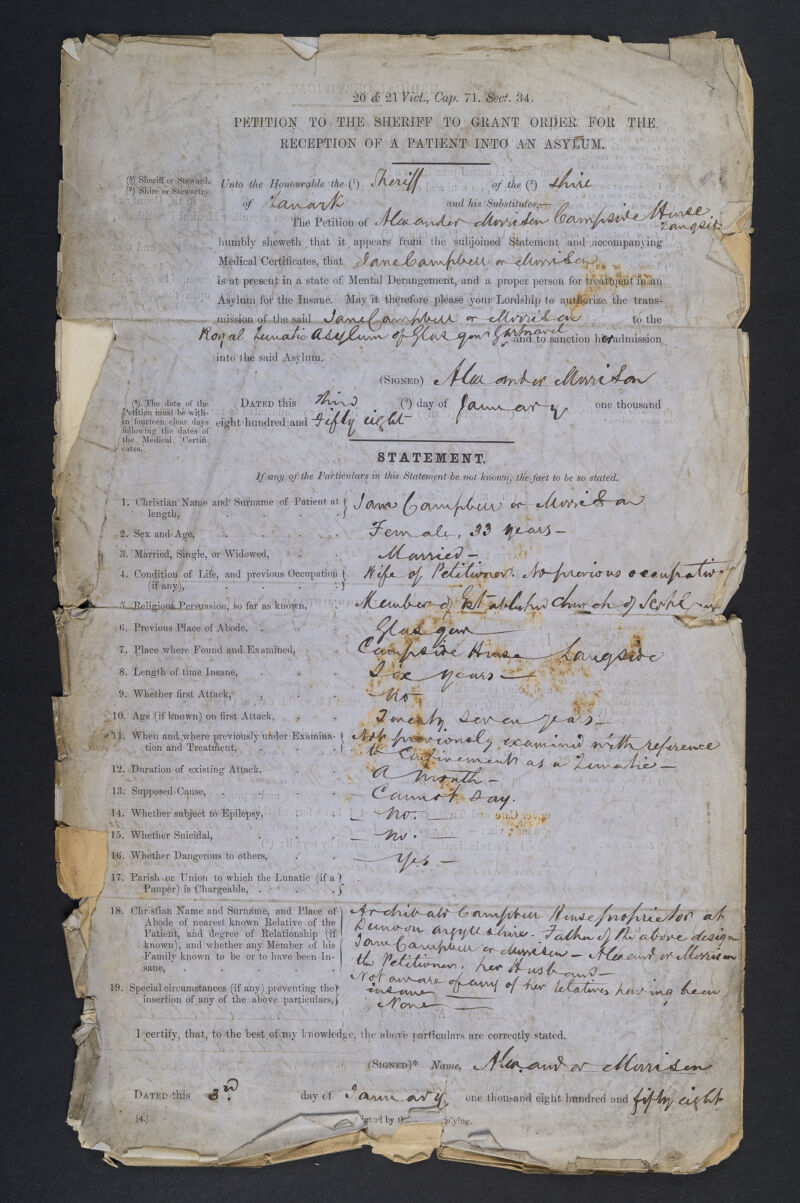 20 & 21 Vict., Cap. 71. Sect. 34.
PETITION TO THE SHERIFF TO GRANT ORDER FOR THE
RECEPTION OF A PATIENT INTO AN ASYLUM.
(¹) Sheriff or Steward.
(²) Shire or Stewartry.
Unto the Honourable the (¹) Sheriff of the (²) Shire
of Lanark and his Substitutes,—
The Petition of Alexander Morrison Campside House Langside
humbly sheweth that it appears from the subjoined Statement and accompanying
Medical Certificates, that Jane Campbell or Morrison
is at present in a state of Mental Derangement, and a proper person for treatment in an
Asylum for the Insane. May it therefore please your Lordship to authorize the trans-
mission of the said Jane Campbell or Morrison to the
Royal Lunatic Asylum of Glasgow Gartnavel and to sanction her admission
into the said Asylum.
(SIGNED) Alexander Morrison
(³) The date of the
Petition must be with-
in fourteen clear days
following the dates of
the Medical Certifi-
cates.
DATED this third (³) day of January one thousand
eight hundred and Fifty eight
STATEMENT.
If any of the Particulars in this Statement be not known, the fact to be so stated.
1. Christian Name and Surname of Patient at length, Jane Campbell or Morrison
2. Sex and Age, Female, 33 years –
3. Married, Single, or Widowed, Married –
4. Condition of Life, and previous Occupation (if any), Wife of Petitioner. No previous occupation
5. Religious Persuasion, so far as known, Member of Established Church of Scotland
6. Previous Place of Abode. Glasgow
7. Place where Found and Examined, Campside House Langside
8. Length of time Insane, Six years –
9. Whether first Attack, No –
10. Age (if known) on first Attack, Twenty seven years –
11. When and where previously under Examina-tion and Treatment, Not previously examined with reference
to Confinement as a Lunatic –
12. Duration of existing Attack, A month –
13. Supposed Cause, Cannot say.
14. Whether subject to Epilepsy, No.
15. Whether Suicidal, No.
16. Whether Dangerous to others, Yes –
17. Parish or Union to which the Lunatic (if a Pauper) is Chargeable,
18. Christian Name and Surname, and Place of
Abode of nearest known Relative of the
Patient, and degree of Relationship (if
known), and whether any Member of his
Family known to be or to have been In-
sane,
Archibald Campbell House proprietor at
Dunoon Argyllshire. Father of the above design
Jane Campbell or Morrison – Alexander Morrison
the Petitioner, her Husband –
Not aware of any of her relatives having been
insane
19. Special circumstances (if any) preventing the insertion of any of the above particulars, None
I certify, that, to the best of my knowledge, the above particulars are correctly stated.
(SIGNED)* Name, Alexander Morrison
DATED this 3rd day of January one thousand eight hundred and fifty eight
[4.]